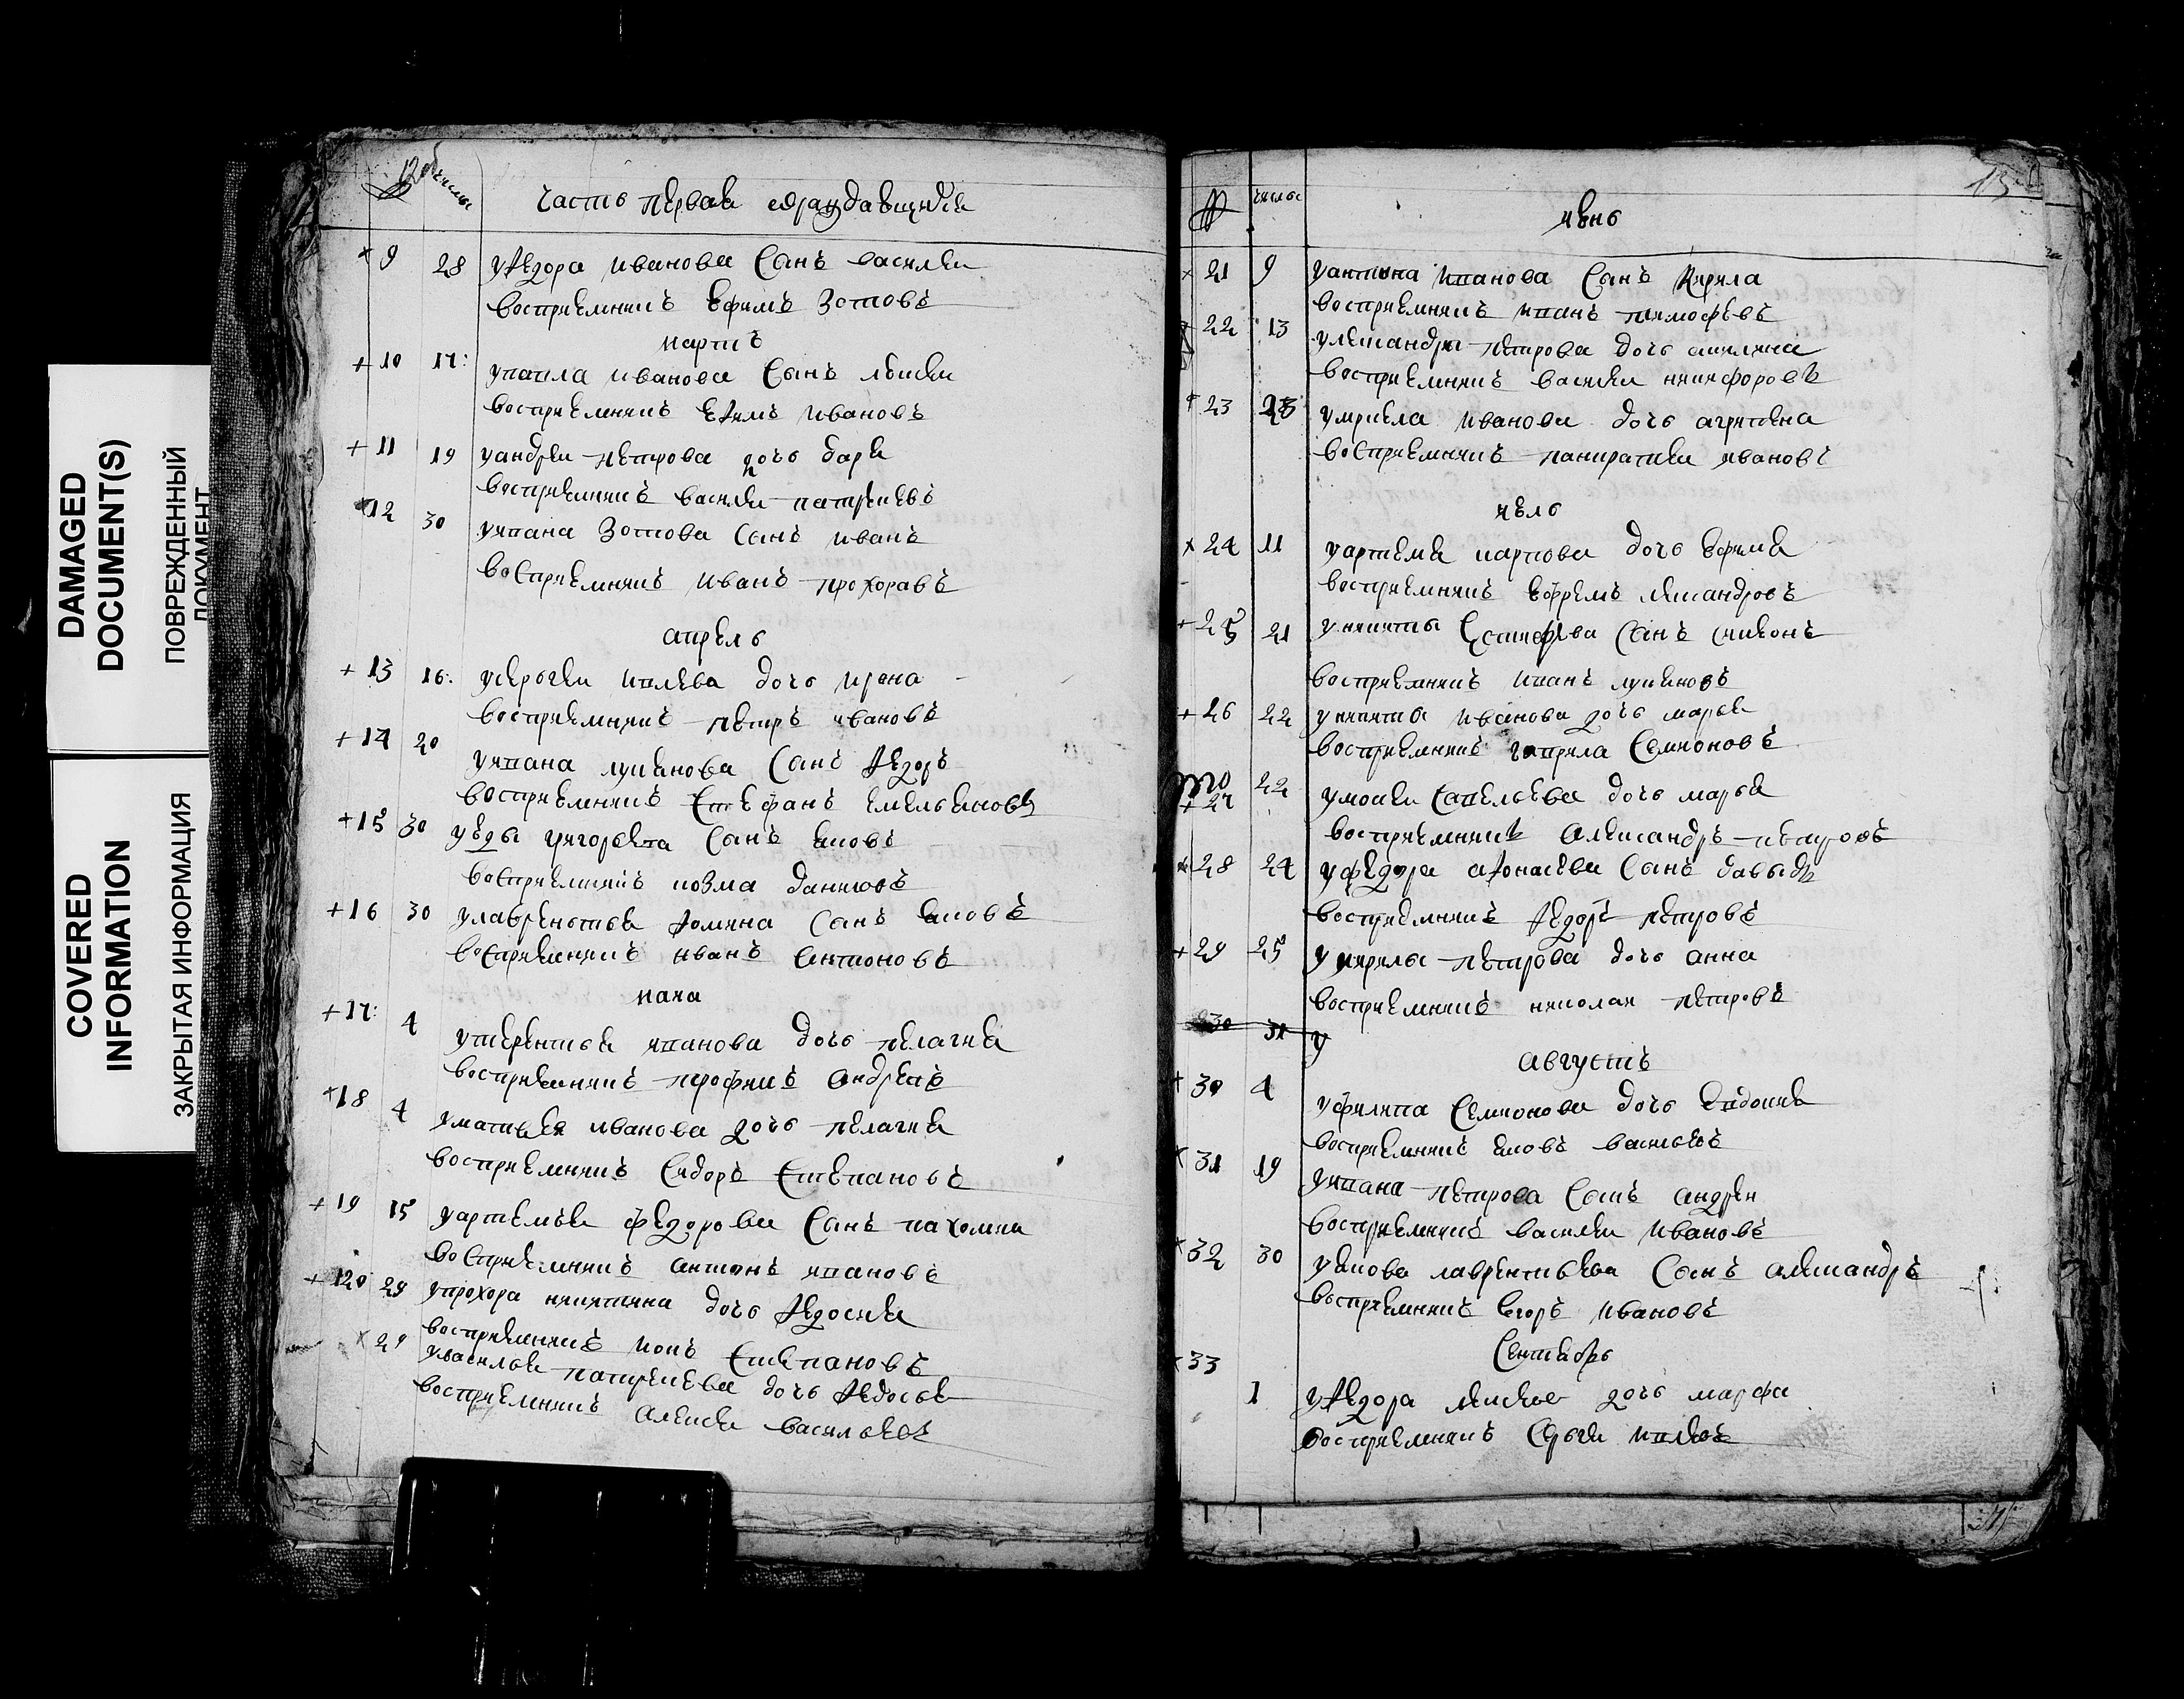 DAMAGED
DOCUMENT(S)
ПОВРЕЖДЕННЫЙ
ДОКУМЕНТ
COVERED
INFORMATION
ЗАКРЫТАЯ ИНФОРМАЦИЯ
12об числы
часть первая
9 28 уѳедора иванова сынъ василеи
восприемникъ ефимъ зотовъ
мартъ
10 17: упавла иванова сынъ
восприемникъ ивановъ
11 19 уандреи петрова дочь даря
восприемникъ василеи патрикѣвъ
12 30 уивана зотова сынъ иванъ
восприемникъ иванъ прохоравъ
апрель
13 16: усергѣи дочь ирена
восприемникъ петръ ивановъ
14 20 уивана лукянова сынъ ѳедоръ
восприемникъ стефанъ емельяновъ
15 30 григорьева сынъ яковъ
восприемникъ козма даниловъ
16 30 улаврентья ѳомина сынъ яковъ
восприемникъ иванъ антоновъ
маия
17: 4 утерентья иванова дочь пелагия
восприемникъ трофимъ андреевъ
18 4 уматвея иванова дочь пелагия
восприемникъ сидоръ степановъ
19 15 уартемья федорова сынъ пахомии
восприемникъ антонъ ивановъ
120 29 упрохора никитина дочь ѳедосия
восприемникъ степановъ
29 увасилья патрикева дочь ѳедосья
восприемникъ алексеи васильевъ
числы 13
июнь
21 9 уантона иванова сынъ кирила
восприемникъ иванъ тимофѣевъ
22 13 улександры петрова дочь акилина
восприемникъ василеи никифоровъ
23 23 укирила иванова дочь агрипена
восприемникъ панкратеи ивановъ
июль
24 11 уартемя карпова дочь ефимя
восприемникъ ефремъ лександровъ
25 21 уникиты сынъ никонъ
восприемникъ иванъ лукяновъ
26 22 уникиты иванова дочь марья
восприемникъ гаврила семионовъ
27 22 умокеи савельева дочь марья
восприемникъ александръ петровъ
28 24 уфедора аѳонасева сынъ давыдъ
восприемникъ ѳедоръ петровъ
29 25 укирилы петрова дочь анна
восприемникъ николаи петровъ
30 31 у
августъ
30 4 уфилипа семионова дочь евдокия
восприемникъ яковъ васильевъ
31 19 уивана петрова сынъ андреи
восприемникъ василеи ивановъ
32 30 уякова лаврентьева сынъ александръ
восприемникъ егоръ ивановъ
сентябрь
33 1 уѳедора дочь марфа
восприемникъ сергѣи